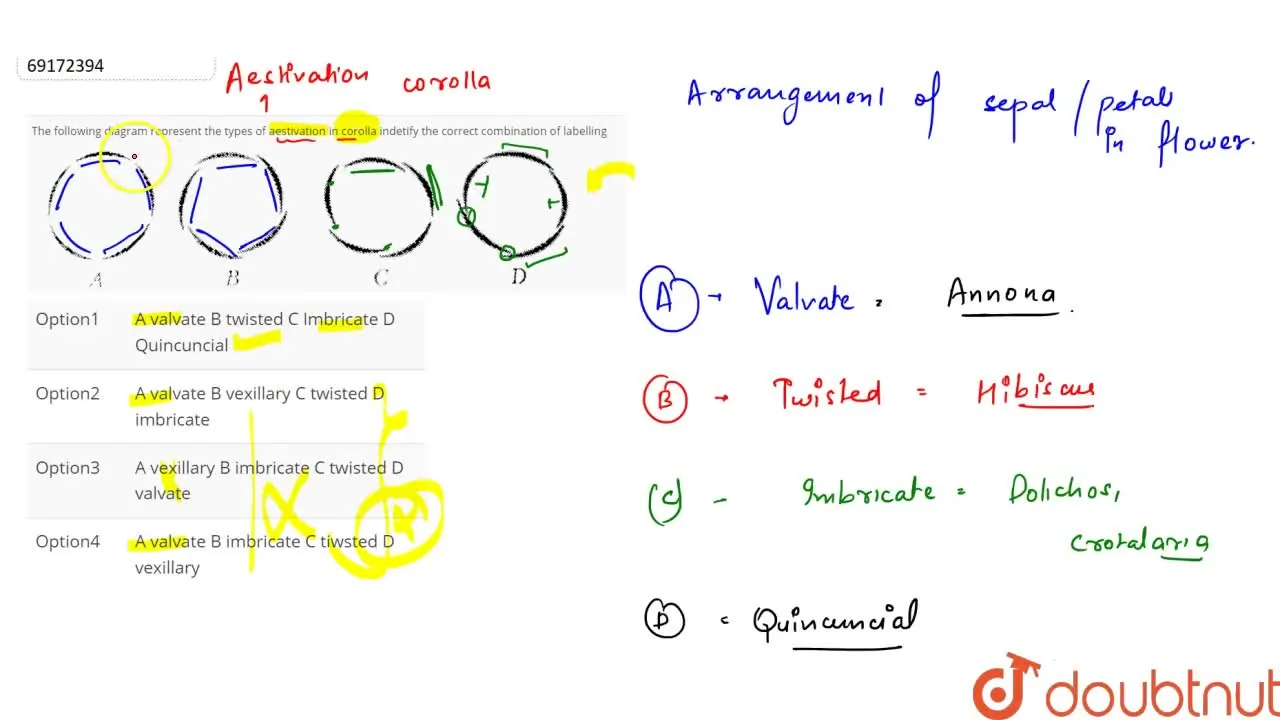 69172394
Aestivation corolla
1
The following diagram represent the types of aestivation in corolla indetify the correct combination of labelling
A B C D
Option1 A valvate B twisted C Imbricate D
Quincuncial
Option2 A valvate B vexillary C twisted D
imbricate
Option3 A vexillary B imbricate C twisted D
valvate
Option4 A valvate B imbricate C tiwsted D
vexillary
Arrangement of sepal / petals
in flower.
A → Valvate = Annona.
B → Twisted = Hibiscus
(C) - Imbricate = Dolichos,
crotalaria
D = Quincuncial
doubtnut